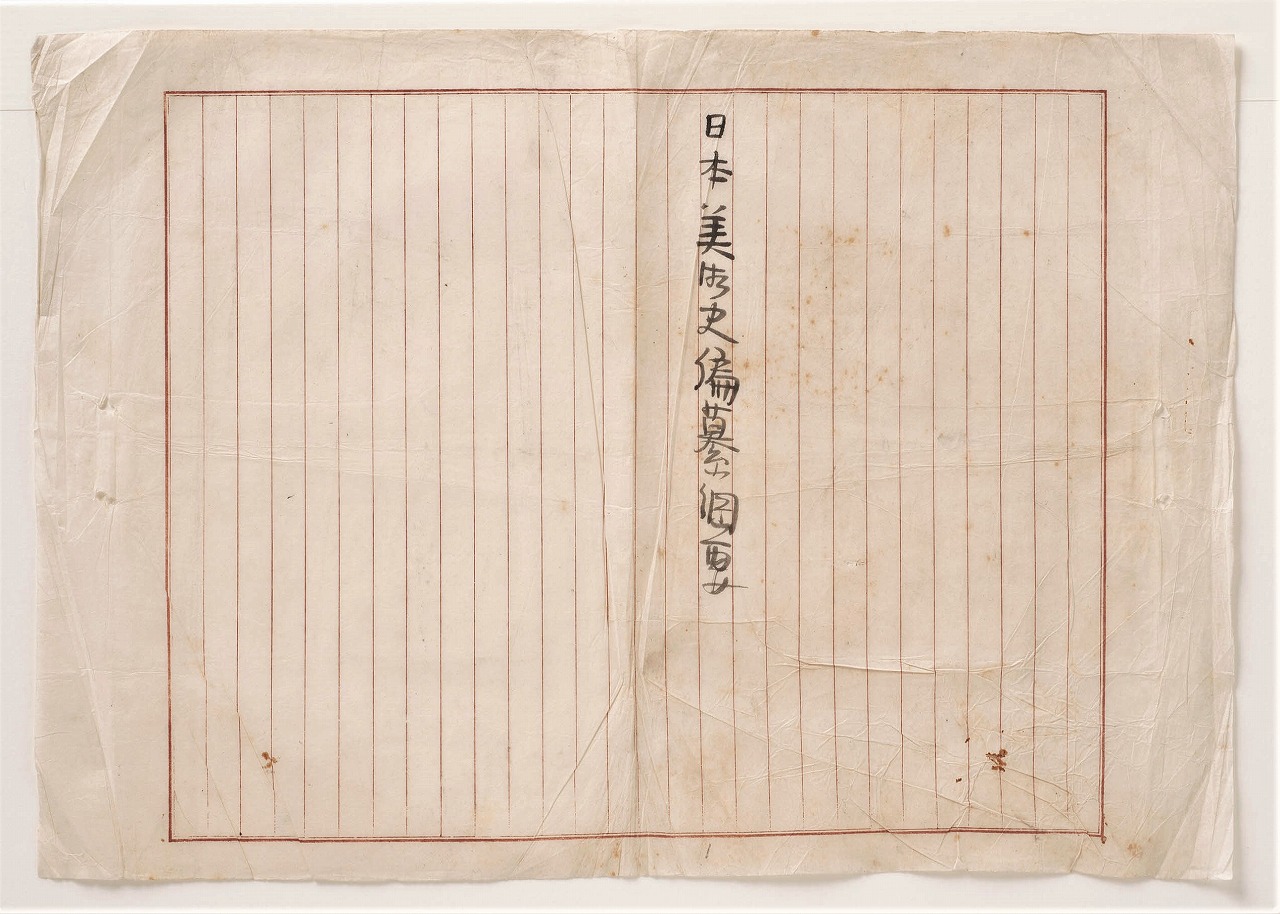 日本美術史編纂綱要